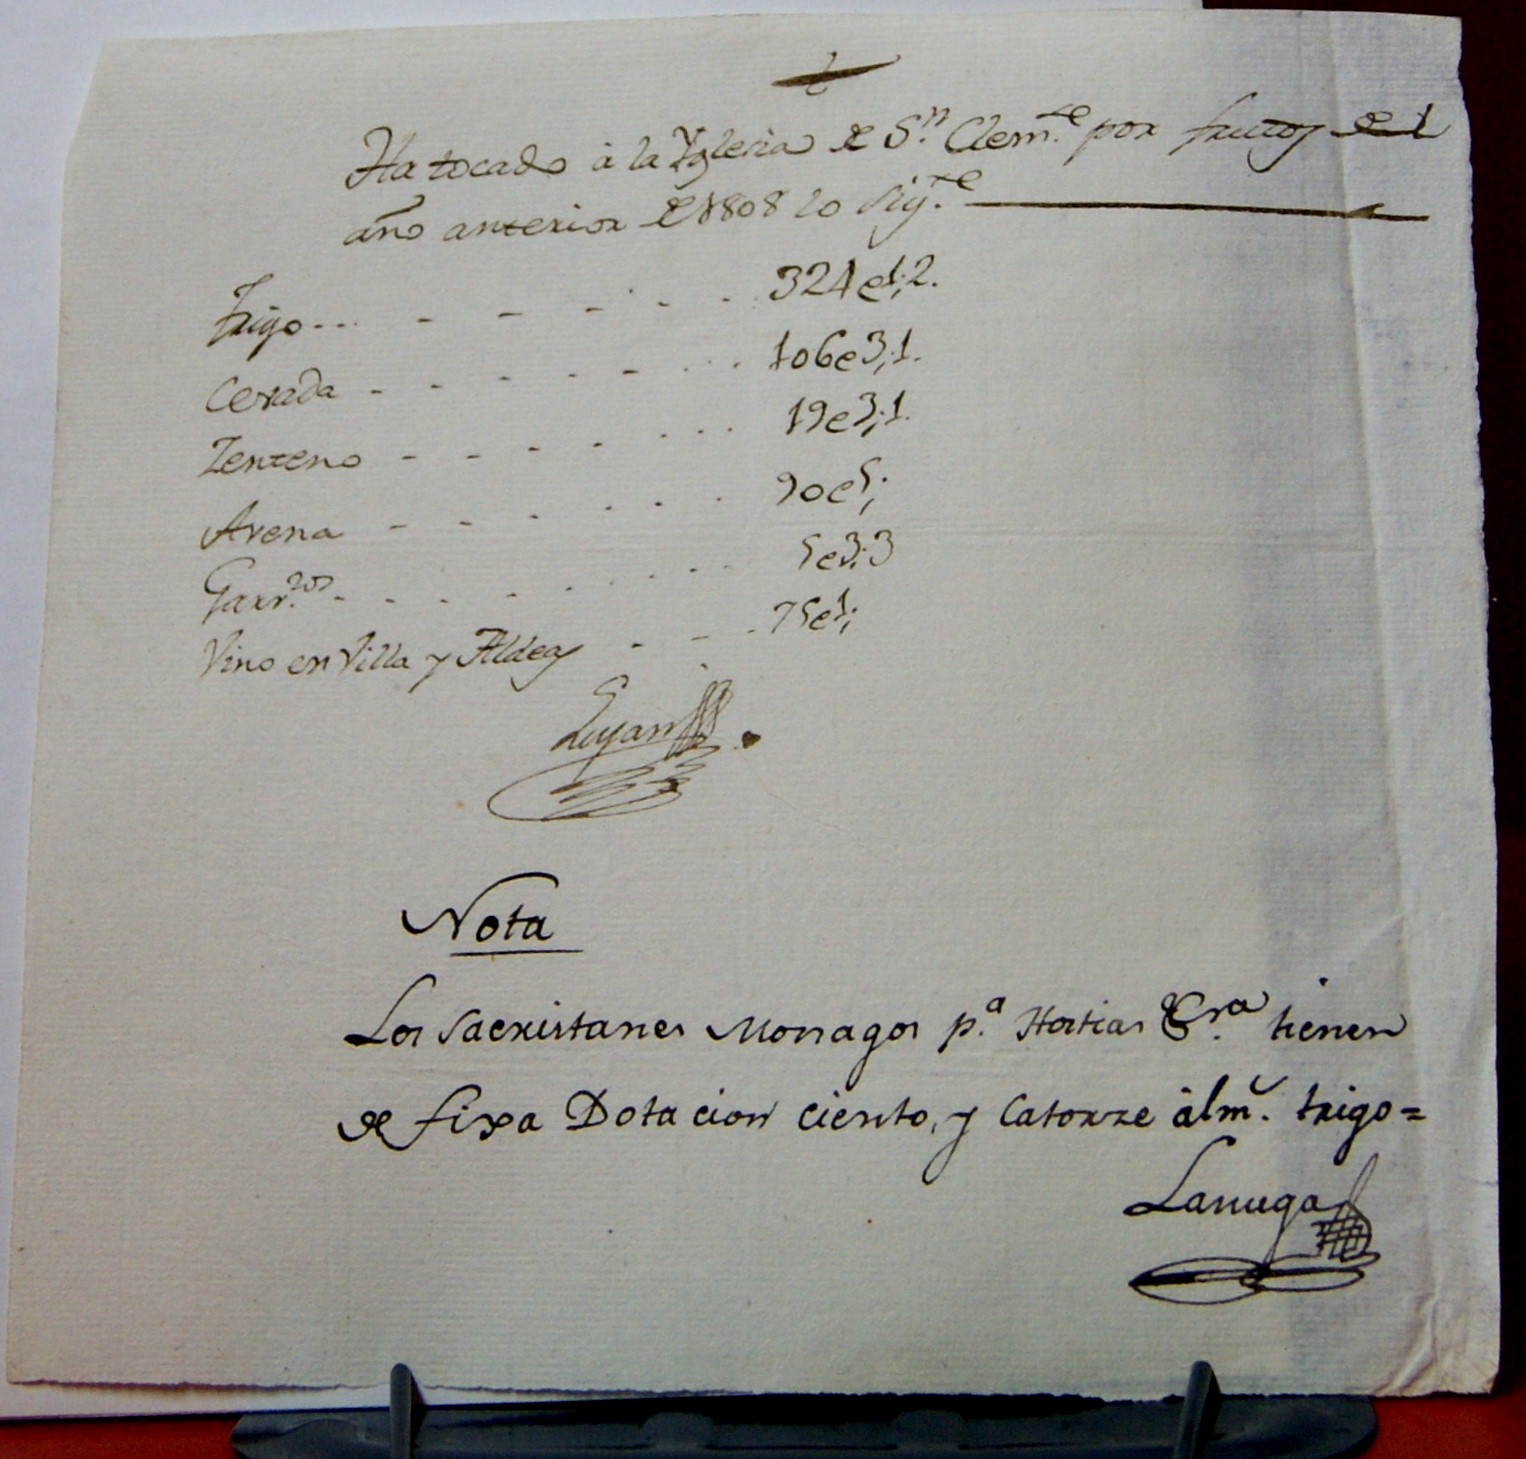 Ha tocado à la Yglesia de S.n Clem.te por frutos del
año anterior de 1808 lo sig.te
Trigo 324e1;2.
Cevada 106e3;1.
Zenteno 19e3;1.
Avena 90e5;
Garv.zos 5e3;3
Vino en Villa y Aldeas 75e1;
Luyan
Nota
Los Sacristanes Monagos p.a Hostias &.ra tienen
de fixa Dotacion ciento, y Catorze àlm.s trigo=
Lanuga